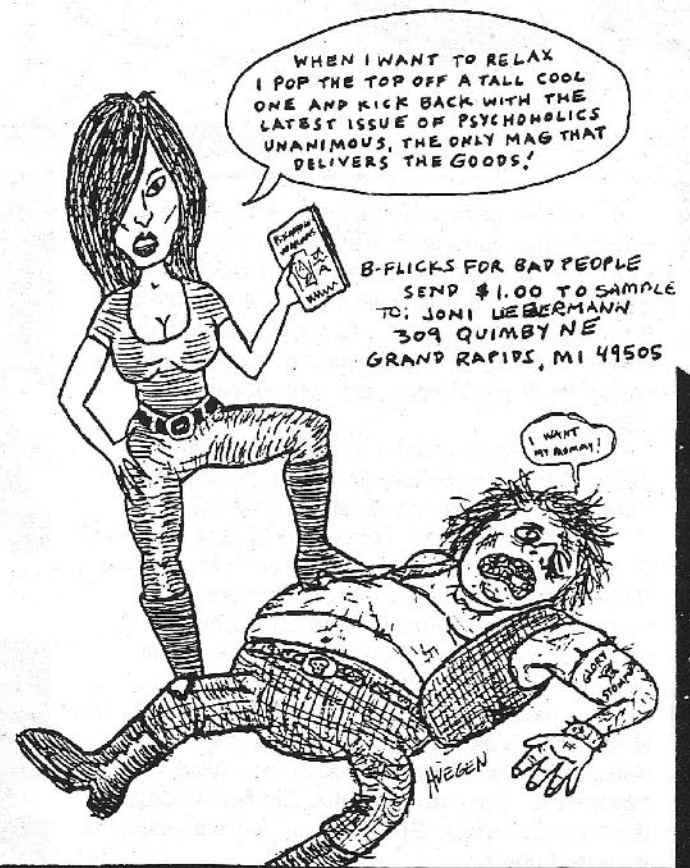 WHEN I WANT TO RELAX
I POP THE TOP OFF A TALL COOL
ONE AND KICK BACK WITH THE
LATEST ISSUE OF PSYCHOHOLICS
UNANIMOUS, THE ONLY MAG THAT
DELIVERS THE GOODS!
B-FLICKS FOR BAD PEOPLE
SEND $1.00 TO SAMPLE
TO: JONI LIEBERMANN
309 QUIMBY NE
GRAND RAPIDS, MI 49505
I WANT
MY MOMMY!
GLORY
STOMPER